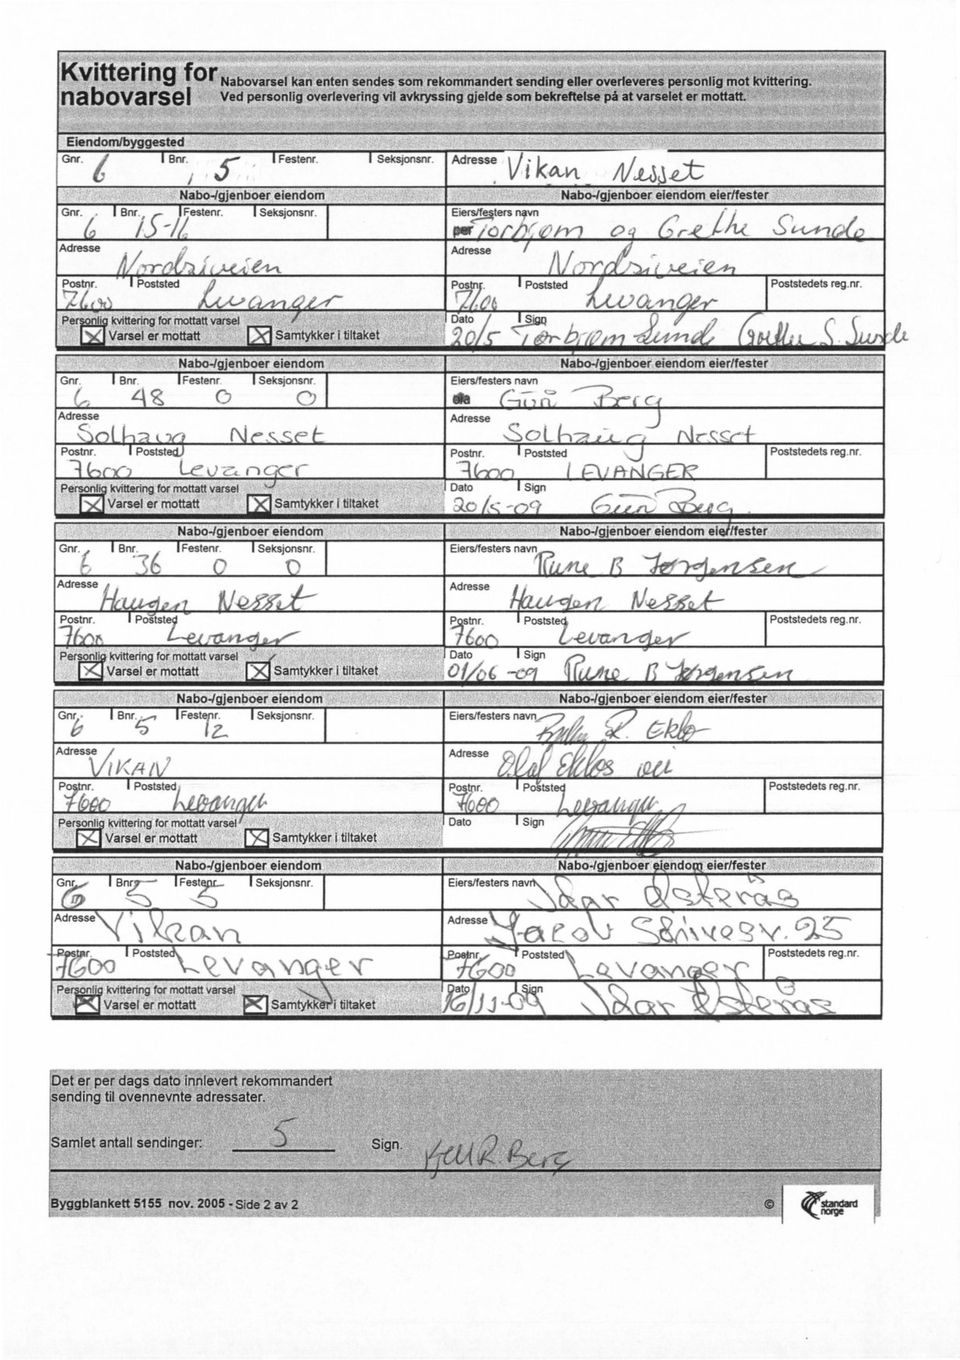 Kvittering for nabovarsel
Nabovarsel kan enten sendes som rekommandert sending eller overleveres personlig mot kvittering.
Ved personlig overlevering vil avkryssing gjelde som bekreftelse på at varselet er mottatt.
Eiendom/byggested
Gnr. Bnr. Festenr. Seksjonsnr. Adresse
6 5 Vikan Nesset
Nabo-/gjenboer eiendom Nabo-/gjenboer eiendom eier/fester
Gnr. Bnr. Festenr. Seksjonsnr. Eiers/festers navn
6 15-16 Torbjørn og Grethe Sunde
Adresse Adresse
Nordsiveien Nordsiveien
Postnr. Poststed Postnr. Poststed Poststedets reg.nr.
7600 Levanger 7600 Levanger
Personlig kvittering for mottatt varsel Dato Sign
Varsel er mottatt Samtykker i tiltaket 20/5 Torbjørn Sunde Grethe S. Sunde
Nabo-/gjenboer eiendom Nabo-/gjenboer eiendom eier/fester
Gnr. Bnr. Festenr. Seksjonsnr. Eiers/festers navn
6 48 0 0 Gun Berg
Adresse Adresse
Solhaug Nesset Solhaug Nesset
Postnr. Poststed Postnr. Poststed Poststedets reg.nr.
7600 Levanger 7600 LEVANGER
Personlig kvittering for mottatt varsel Dato Sign
Varsel er mottatt Samtykker i tiltaket 20/5-09 Gun Berg
Nabo-/gjenboer eiendom Nabo-/gjenboer eiendom eier/fester
Gnr. Bnr. Festenr. Seksjonsnr. Eiers/festers navn
6 36 0 0 Rune B Jørgensen
Adresse Adresse
Haugen Nesset Haugen Nesset
Postnr. Poststed Postnr. Poststed Poststedets reg.nr.
7600 Levanger 7600 Levanger
Personlig kvittering for mottatt varsel Dato Sign
Varsel er mottatt Samtykker i tiltaket 01/06-09 Rune B Jørgensen
Nabo-/gjenboer eiendom Nabo-/gjenboer eiendom eier/fester
Gnr. Bnr. Festenr. Seksjonsnr. Eiers/festers navn
6 5 12 R. Eklo
Adresse Adresse
VIKAN Olaf Eklos vei
Postnr. Poststed Postnr. Poststed Poststedets reg.nr.
7600 Levanger 7600 Levanger
Personlig kvittering for mottatt varsel Dato Sign
Varsel er mottatt Samtykker i tiltaket
Nabo-/gjenboer eiendom Nabo-/gjenboer eiendom eier/fester
Gnr. Bnr. Festenr. Seksjonsnr. Eiers/festers navn
6 5 5 Idar Østerås
Adresse Adresse
Vikan Jacob Schivesv. 25
Postnr. Poststed Postnr. Poststed Poststedets reg.nr.
7600 Levanger 7600 Levanger
Personlig kvittering for mottatt varsel Dato Sign
Varsel er mottatt Samtykker i tiltaket 16/11-09 Idar Østerås
Det er per dags dato innlevert rekommandert
sending til ovennevnte adressater.
Samlet antall sendinger: 5 Sign. Kjell R. Berg
Byggblankett 5155 nov. 2005 - Side 2 av 2 © standard
norge